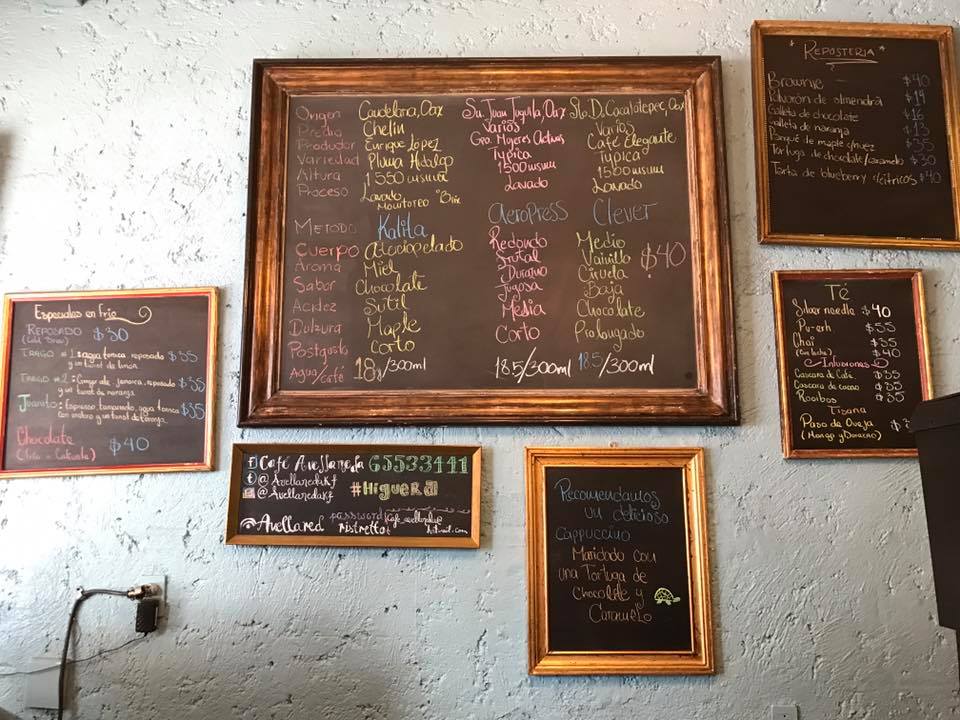 Especiales en frío
REPOSADO $30
(Cold Brew)
TRAGO #1: agua tonica, reposado $55
y un twist de limon.
TRAGO #2: Ginger ale, jamaica, reposado $55
y un twist de naranja
Juanito: Espresso, tonica $35
y un twist de naranja.
Chocolate $40
(Frío o Caliente)
Origen Candelaria, Oax Sn. Juan Juquila, Oax Sto. D. Cacalotepec, Oax
Predio Chelin Varios Varios
Productor Enrique López Gpo. Mujeres Activas Café Elegante
Variedad Pluma Hidalgo Typica Typica
Altura 1550 msnm 1500 msnm 1500 msnm
Proceso Lavado Lavado Lavado
Monitoreo °Brix
METODO Kalita AeroPress Clever
Cuerpo Aterciopelado Redondo Medio
Aroma Miel Frutal Vainilla $40
Sabor Chocolate Durazno Ciruela
Acidez Sutil Jugosa Baja
Dulzura Maple Media Chocolate
Postgusto Corto Corto Prolongado
Agua/café 18g/300ml 18.5/300ml 18.5/300ml
Café Avellaneda 65533441
@AvellanedaKf
@AvellanedaKf #Higuera
Avellared password
Ristretto
hotmail.com
Recomendamos
un delicioso
Cappuccino
Maridado con
una Tortuga de
Chocolate y
Caramelo
* REPOSTERIA *
Brownie $40
Polvorón de almendra $14
Galleta de chocolate $16
Galleta de naranja $13
Panqué de maple c/nuez $35
Tortuga de chocolate/caramelo $30
Tarta de blueberry c/citricos $40
Té
Silver needle $40
Pu-erh $55
Chai $40
(con leche)
Infusiones
Cascara de Cafe $35
Cascara de cacao $35
Rooibos $35
Tisana
Paso de Oveja
(Mango y Durazno)